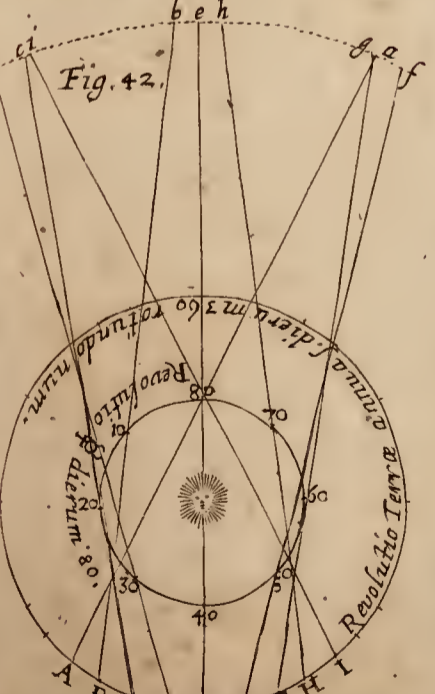 c i b e h g a f
Fig. 42.
Revolutio Terræ annua s. dierum 360 rotundo num.
Revolutio ☿ dierum .80.
80
10
70
20
60
30
50
40
A
H I